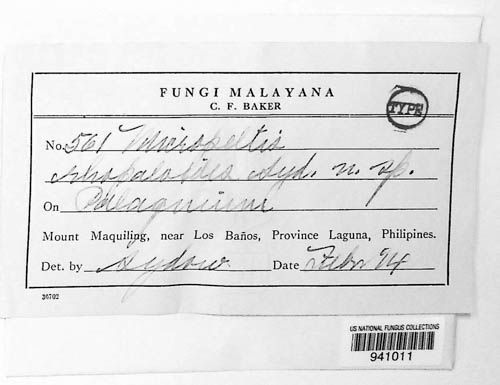 FUNGI MALAYANA
C. F. BAKER
TYPE
No. 561 Micropeltis
rhopaloides Syd. n. sp.
On
Mount Maquiling, near Los Baños, Province Laguna, Philipines.
Det. by Sydow Date Febr 14
26702
US NATIONAL FUNGUS COLLECTIONS
941011